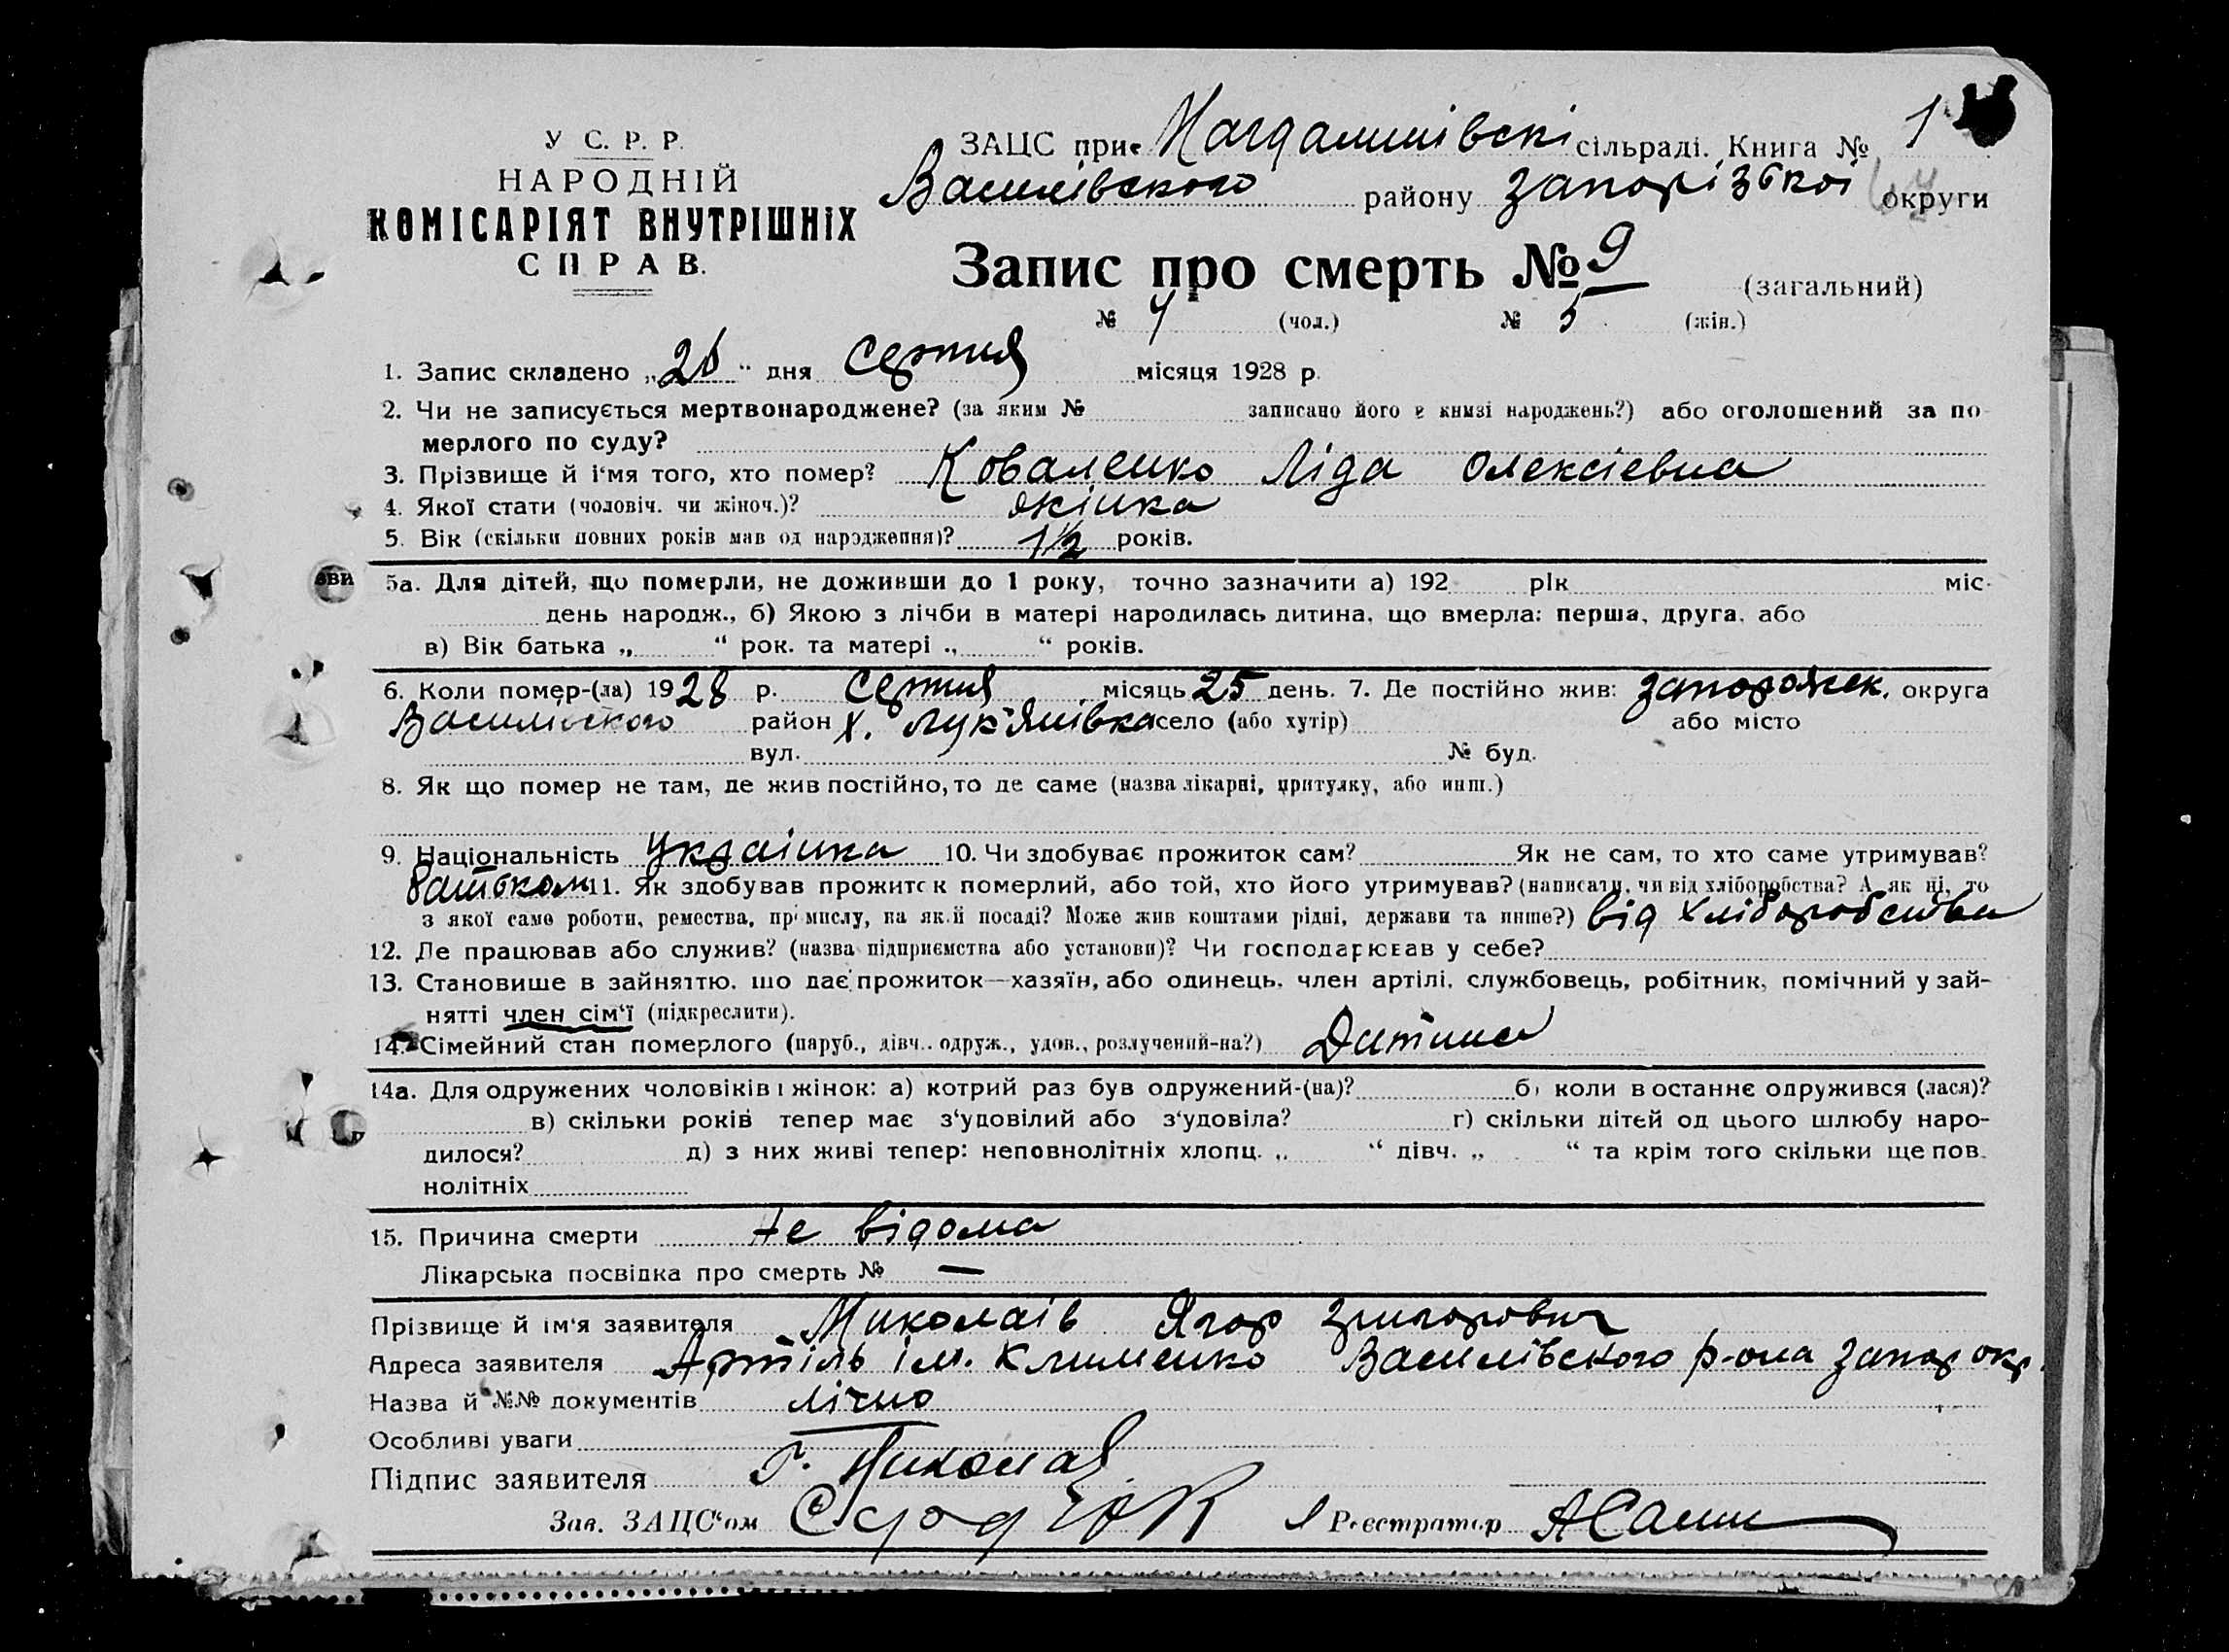 У С. Р. Р.
НАРОДНІЙ
КОМІСАРІЯТ ВНУТРІШНІХ
СПРАВ.
ЗАЦС при сільраді. Книга № 1
Василівського району Запорізької округи
Запис про смерть № 9 (загальний)
№ 4 (чол.) № 5 (жін.)
1. Запис складено „ “ дня Серпня місяця 1928 р.
2. Чи не записується мертвонароджене? (за яким № записано його в книзі народжень?) або оголошений за по-
мерлого по суду?
3. Прізвище й і‘мя того, хто помер? Коваленко Ліда Олексієвна
4. Якої стати (чоловіч. чи жіноч.)? жінка
5. Вік (скільки повних років мав од народження)? 1½ років.
5а. Для дітей, що померли, не доживши до 1 року, точно зазначити а) 192 рік міс.
день народж., б) Якою з лічби в матері народилась дитина, що вмерла: перша, друга, або
в) Вік батька „ “ рок. та матері „ “ років.
6. Коли помер-(ла) 1928 р. Серпня місяць 25 день. 7. Де постійно жив: Запорожск. округа
Василівського район х. Лук'янівка село (або хутір) або місто
вул. № буд.
8. Як що помер не там, де жив постійно, то де саме (назва лікарні, притулку, або инш.)
9. Національність Українка 10. Чи здобуває прожиток сам? Як не сам, то хто саме утримував?
батьком 11. Як здобував прожиток померлий, або той, хто його утримував? (написати, чи від хліборобства? А як ні, то
з якої саме роботи, ремества, промислу, на якій посаді? Може жив коштами рідні, держави та инше?) від хліборобства
12. Де працював або служив? (назва підприємства або установи)? Чи господарював у себе?
13. Становише в зайняттю, що дає прожиток—хазяїн, або одинець, член артілі, службовець, робітник, помічний у зай-
нятті член сім‘ї (підкреслити).
14. Сімейний стан померлого (паруб., дівч.. одруж., удов., розлучений-на?) Дитина
14а. Для одружених чоловіків і жінок: а) котрий раз був одружений-(на)? б) коли в останнє одружився (лася)?
в) скільки років тепер має з‘удовілий або з‘удовіла? г) скільки дітей од цього шлюбу наро-
дилося? д) з них живі тепер: неповнолітніх хлопц. „ “ дівч. „ “ та крім того скільки ще пов.
нолітніх
15. Причина смерти не відома
Лікарська посвідка про смерть № —
Прізвище й ім‘я заявителя Миколаїв Ягор Григорович
Адреса заявителя Артіль ім. Клименко Василівського р-она Запор окр.
Назва й №№ документів лічно
Особливі уваги
Підпис заявителя Г. Николаѣ
Зав. ЗАЦС‘ом
Реєстратор